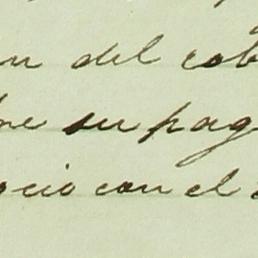 n del cob
re su pag
ocio con el